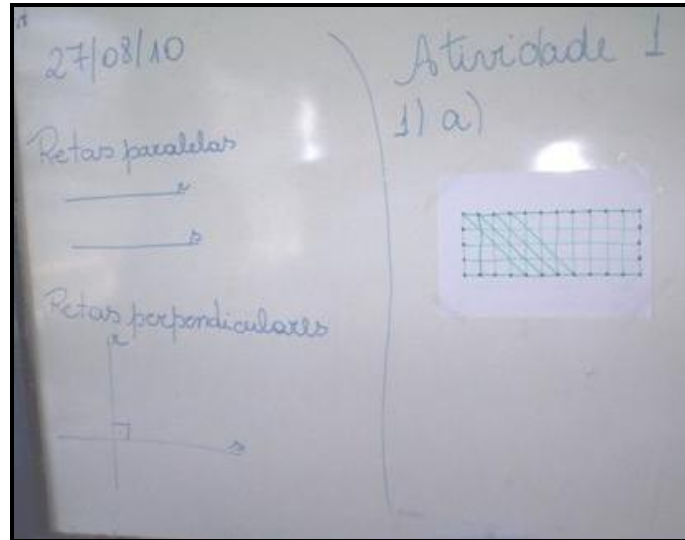 27/08/10
Retas paralelas
r
s
Retas perpendiculares
r
s
Atividade 1
1) a)